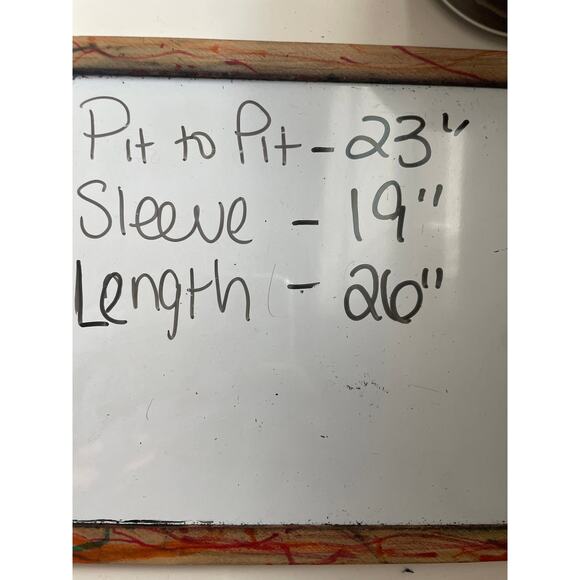 Pit to Pit - 23"
Sleeve - 19"
Length - 26"